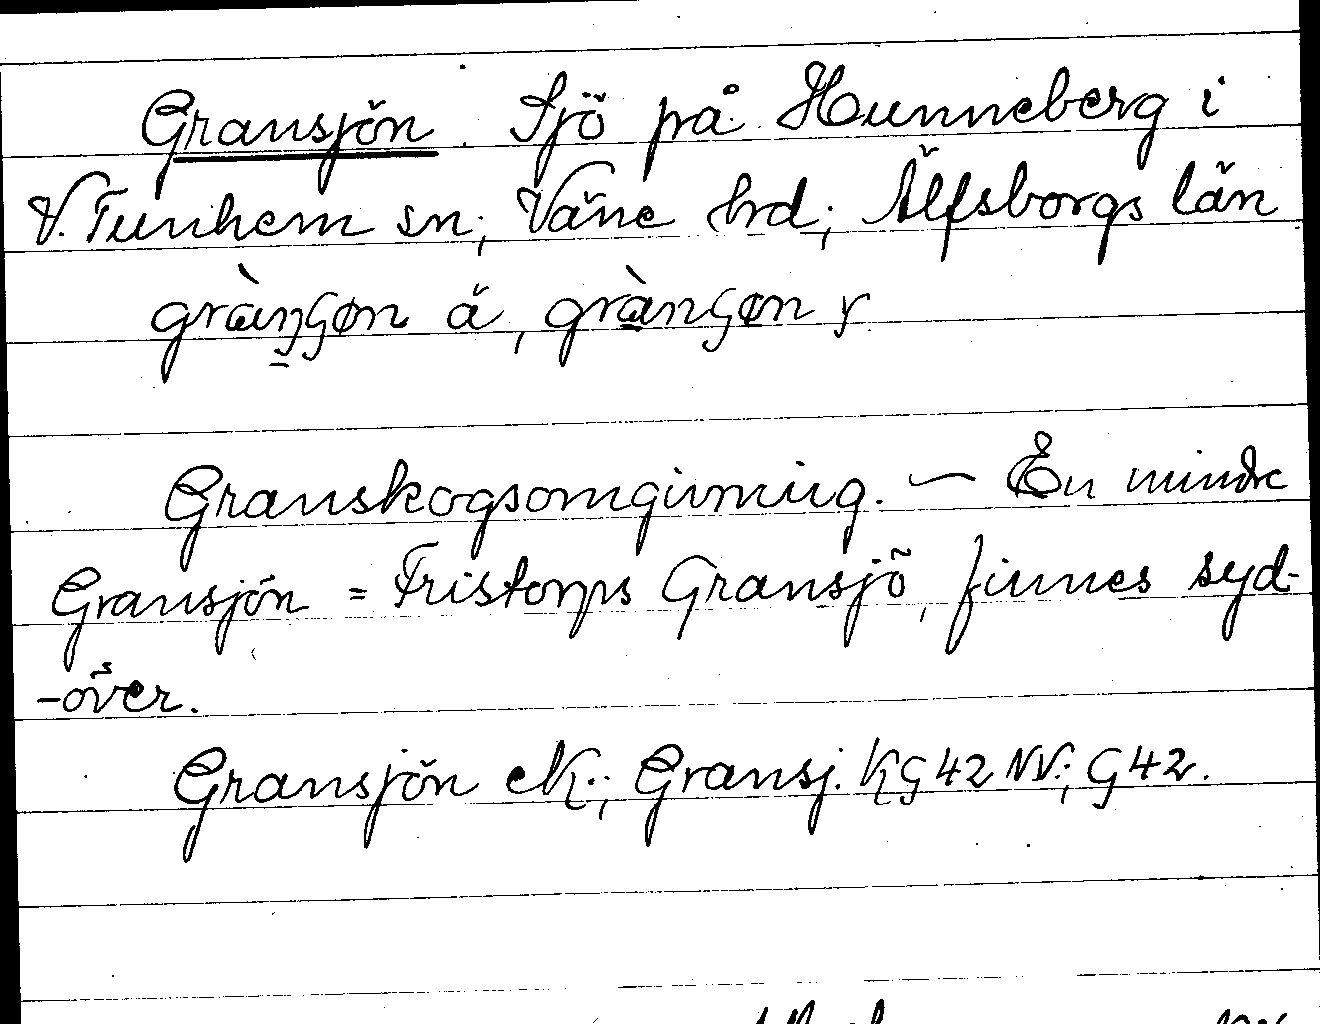 Gransjön. Sjö på Hunneberg i
V. Tunhem sn; Väne hrd; Älfsborgs län
gràŋʃøn ä, grànʃøn y
Granskogsomgivning. — En mindre
Gransjön = Fristorps Gransjö, finnes syd-
-över.
Gransjön eK.; Gransj. KG42 NV.; G42.